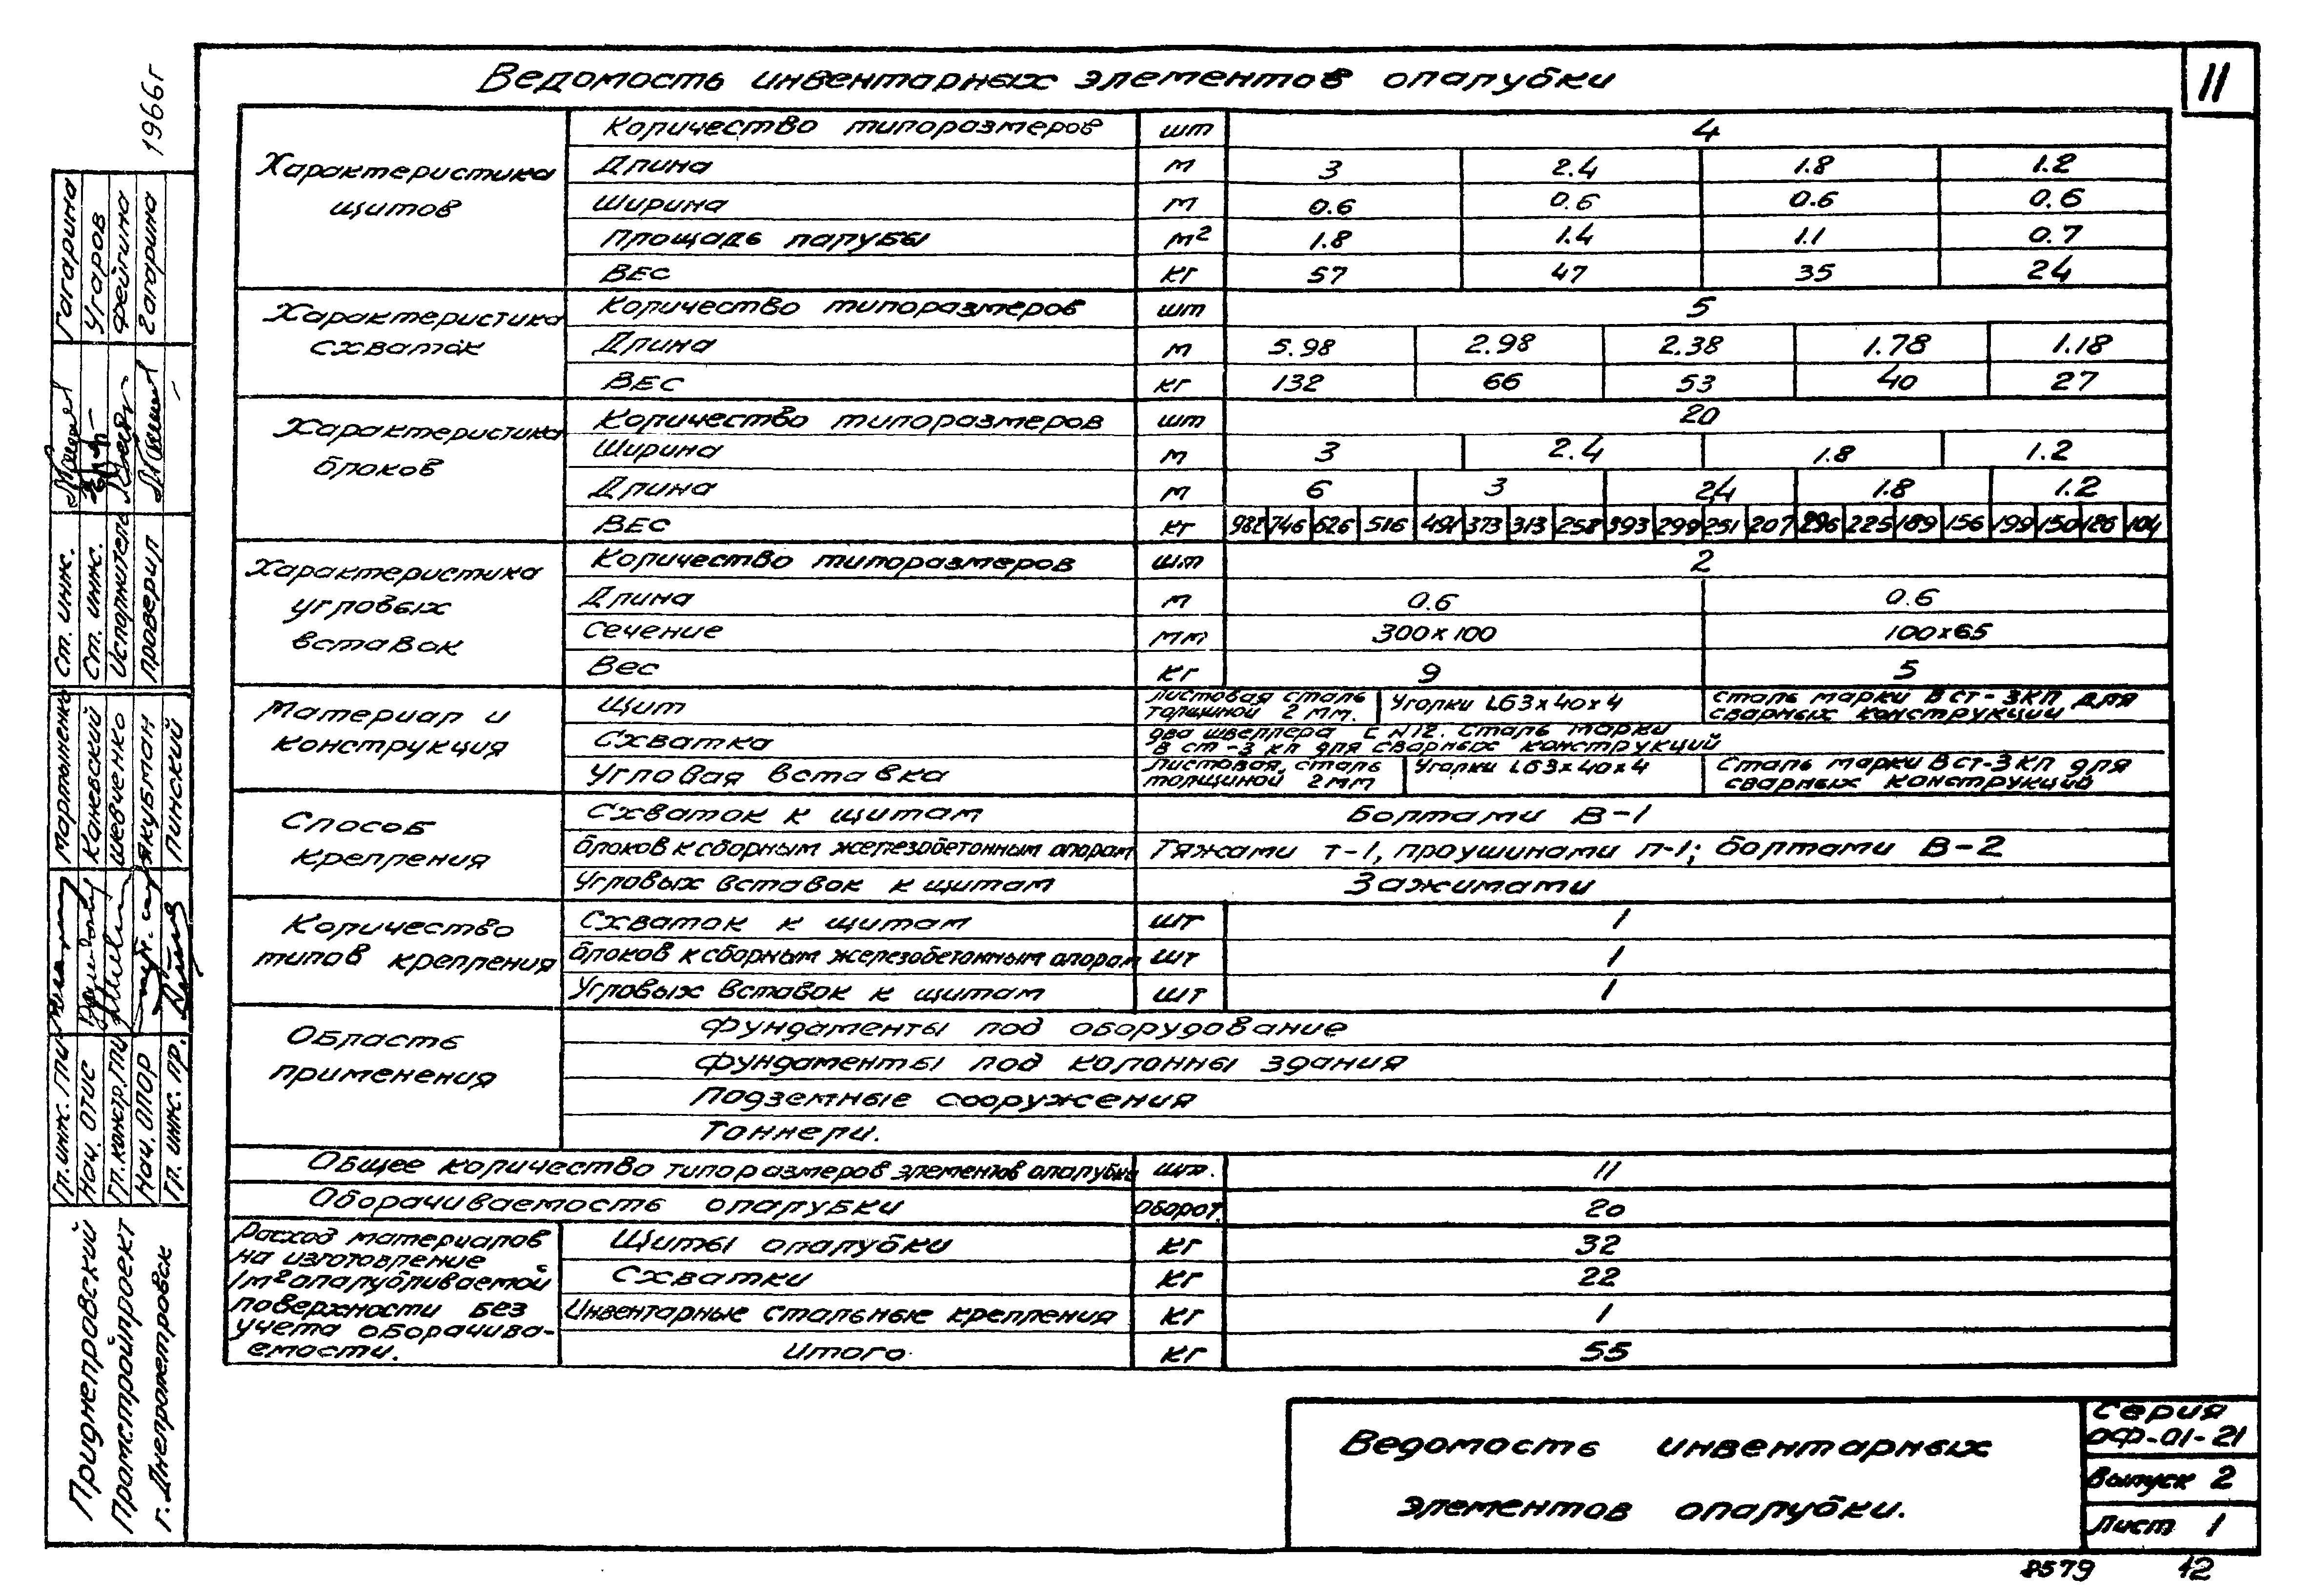 11
Ведомость инвентарных элементов опалубки
Характеристика щитов
Количество типоразмеров шт 4
Длина м 3 2.4 1.8 1.2
Ширина м 0.6 0.6 0.6 0.6
Площадь палубы м² 1.8 1.4 1.1 0.7
Вес кг 57 47 35 24
Характеристика схваток
Количество типоразмеров шт 5
Длина м 5.98 2.98 2.38 1.78 1.18
Вес кг 132 66 53 40 27
Характеристика блоков
Количество типоразмеров шт 20
Ширина м 3 2.4 1.8 1.2
Длина м 6 3 2.4 1.8 1.2
Вес кг 982 746 626 516 491 373 313 258 393 299 251 207 296 225 189 156 199 150 126 104
Характеристика угловых вставок
Количество типоразмеров шт 2
Длина м 0.6 0.6
Сечение мм 300х100 100х65
Вес кг 9 5
Материал и конструкция
Щит Листовая сталь толщиной 2 мм. Уголки L63х40х4 Сталь марки В ст-3кп для сварных конструкций
Схватка два швеллера С N12. Сталь марки В ст-3 кп для сварных конструкций
Угловая вставка Листовая сталь толщиной 2 мм Уголки L63х40х4 Сталь марки В ст-3 кп для сварных конструкций
Способ крепления
Схваток к щитам Болтами В-1
Блоков к сборным железобетонным опорам Тяжами т-1, проушинами п-1; болтами В-2
Угловых вставок к щитам Зажимами
Количество типов крепления
Схваток к щитам шт 1
Блоков к сборным железобетонным опорам шт 1
Угловых вставок к щитам шт 1
Область применения
Фундаменты под оборудование
Фундаменты под колонны здания
Подземные сооружения
Тоннели.
Общее количество типоразмеров элементов опалубки шт. 11
Оборачиваемость опалубки оборот. 20
Расход материалов на изготовление 1м² опалубливаемой поверхности без учета оборачиваемости.
Щиты опалубки кг 32
Схватки кг 22
Инвентарные стальные крепления кг 1
Итого кг 55
Ведомость инвентарных
элементов опалубки.
Серия
ОФ-01-21
Выпуск 2
Лист 1
8579 12
1966г
Приднепровский
Промстройпроект
г. Днепропетровск
Гл. инж. ГПИ Мартыненко
Нач. ОТИС Каневский
Гл. констр. ГПИ Шевченко
Нач. ОПОР Якубман
Гл. инж. пр. Пинский
Ст. инж. Гагарина
Ст. инж. Угаров
Исполнитель Фейгина
Проверил Гагарина